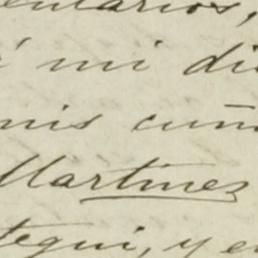 entarios,
mi di
mis cuñ
Martinez
tegui, y e